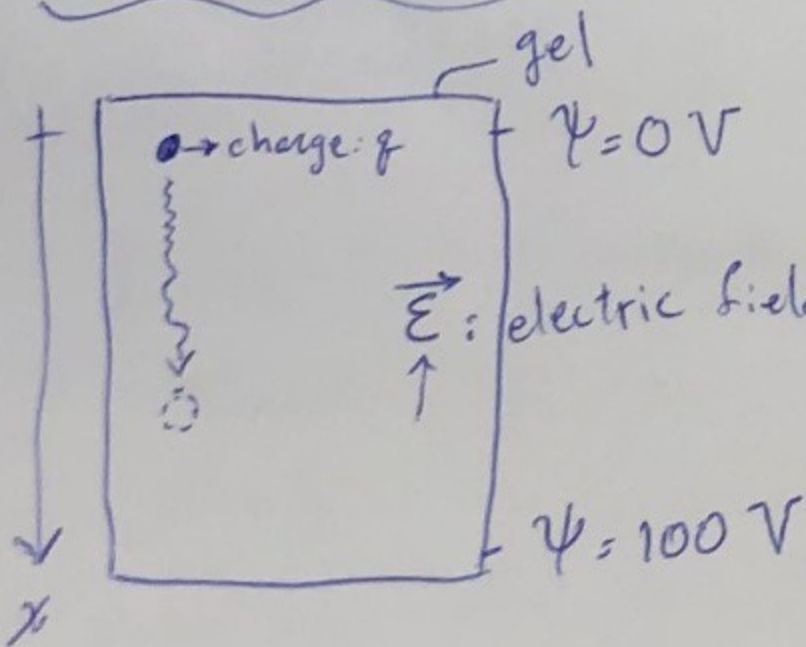 gel
→ charge: q
ψ = 0 V
ε⃗ : electric fiel
ψ = 100 V
x